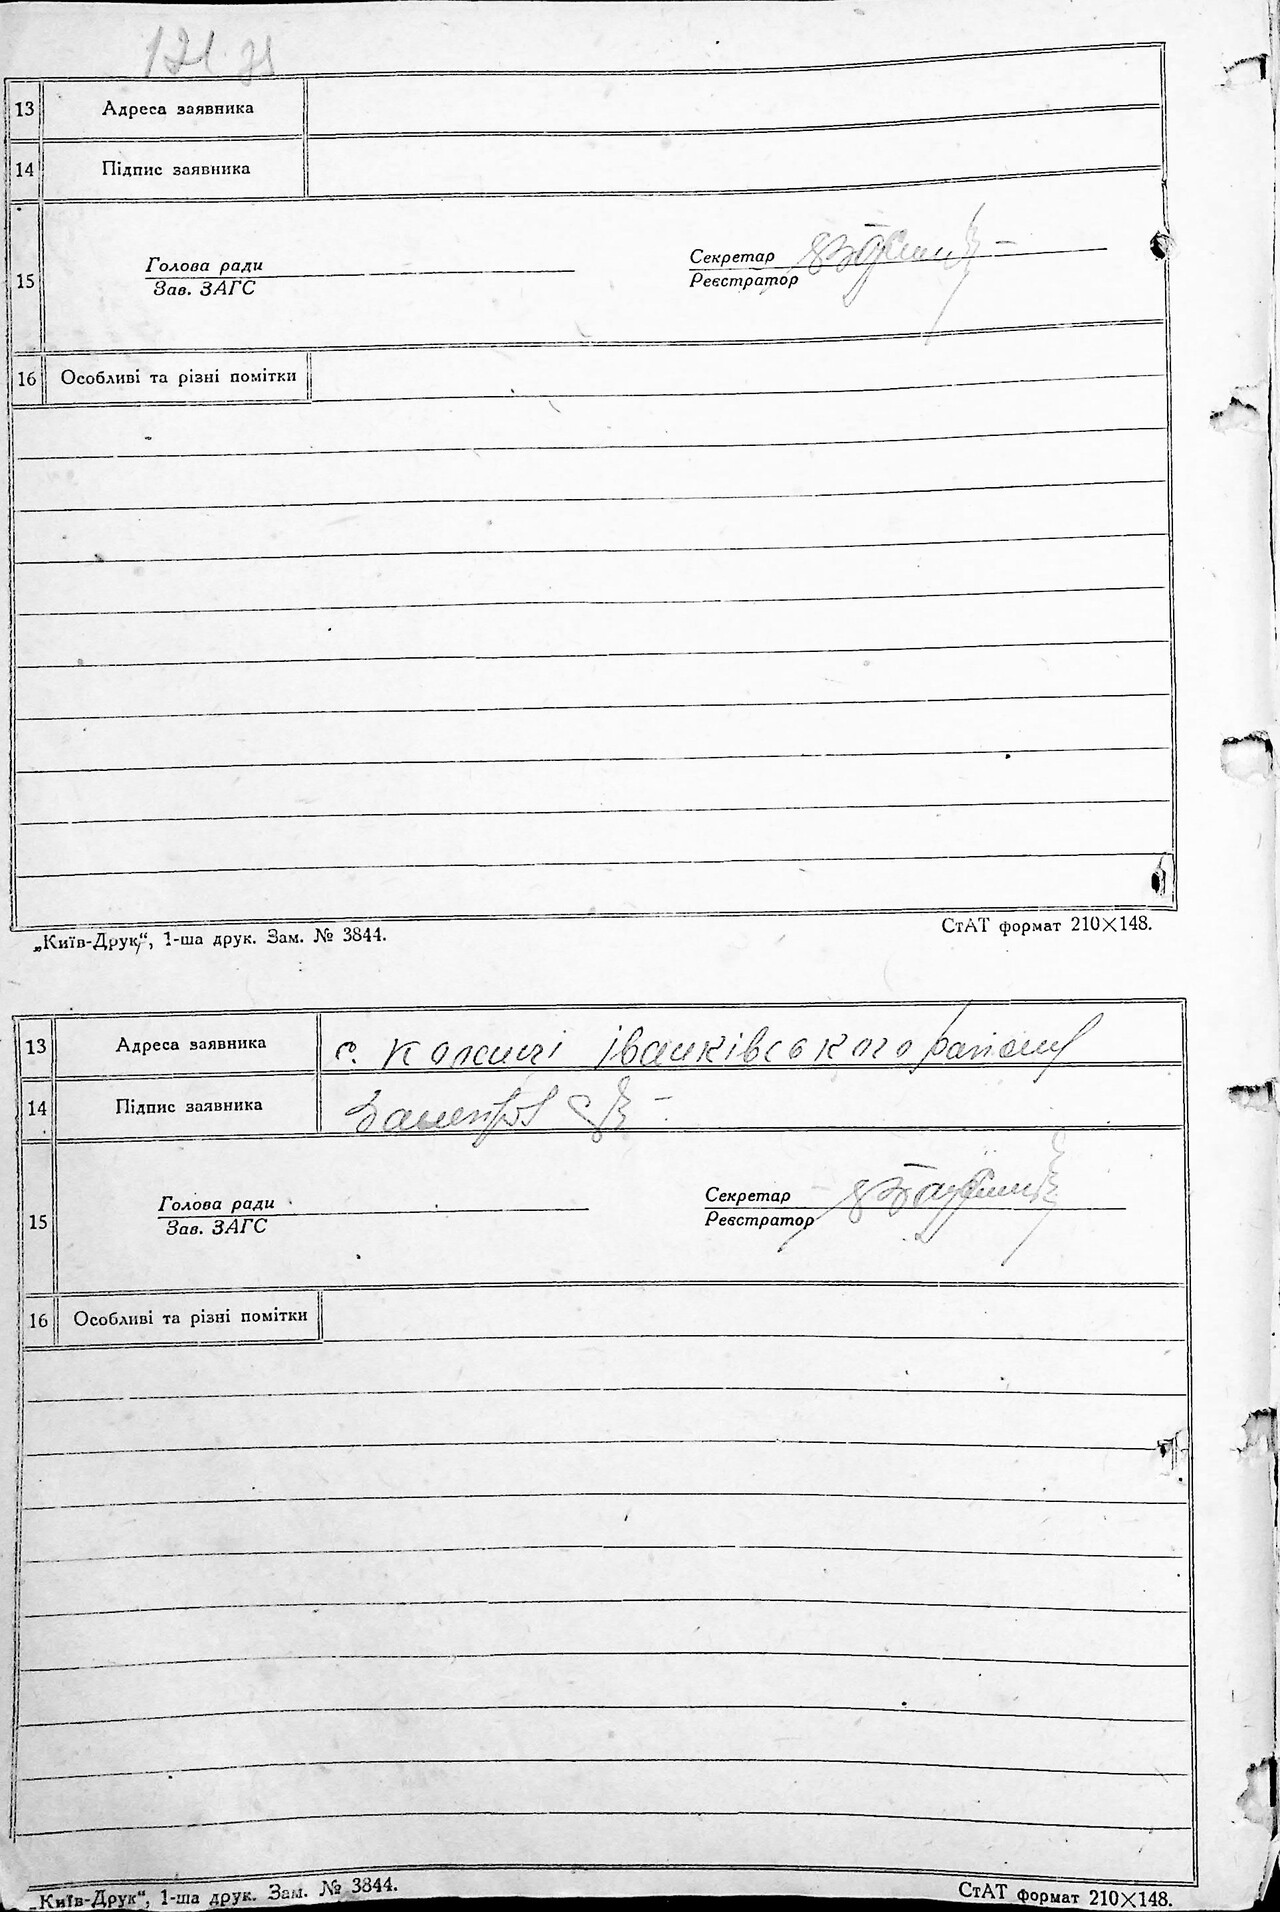 121
13 Адреса заявника
14 Підпис заявника
15 Голова ради Секретар
Зав. ЗАГС Реєстратор
16 Особливі та різні помітки
„Київ-Друк“, 1-ша друк. Зам. № 3844. СтАТ формат 210×148.
13 Адреса заявника с. Іванківського району
14 Підпис заявника
15 Голова ради Секретар
Зав. ЗАГС Реєстратор
16 Особливі та різні помітки
„Київ-Друк“, 1-ша друк. Зам. № 3844. СтАТ формат 210×148.